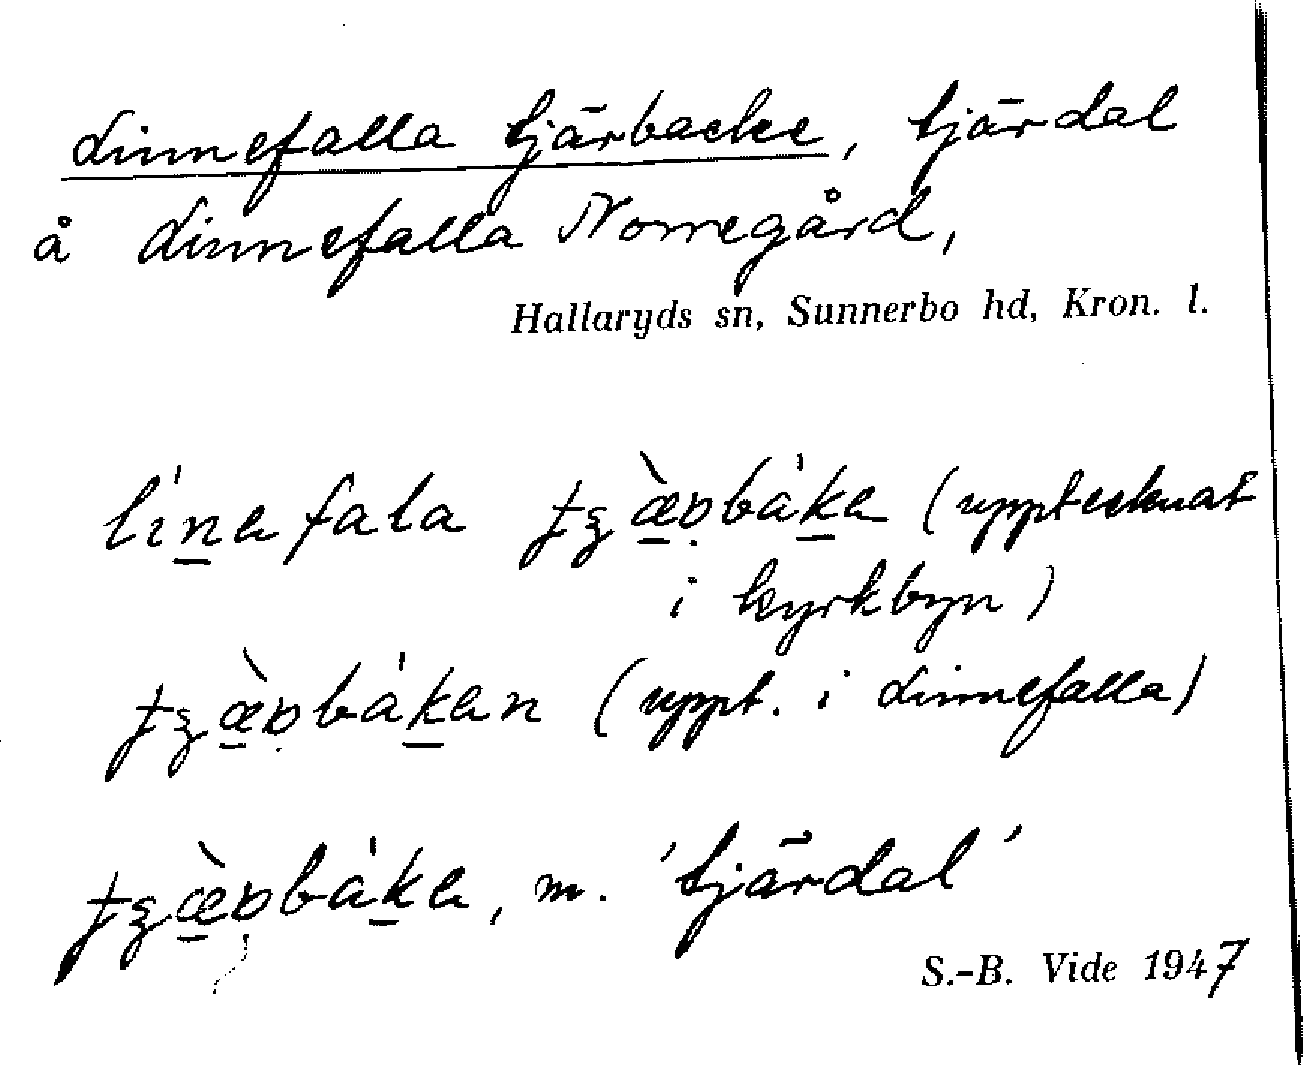 Linnefalla tjärbacke, tjärdal
å Linnefalla Norregård,
Hallaryds sn, Sunnerbo hd, Kron. l.
lìnefala ʈʒæ̀ɒbàke (upptecknat
i kyrkbyn)
ʈʒæ̀ɒbàken (uppt. i Linnefalla)
ʈʒæ̀ɒbàke, m. 'tjärdal'
S.-B. Vide 1947